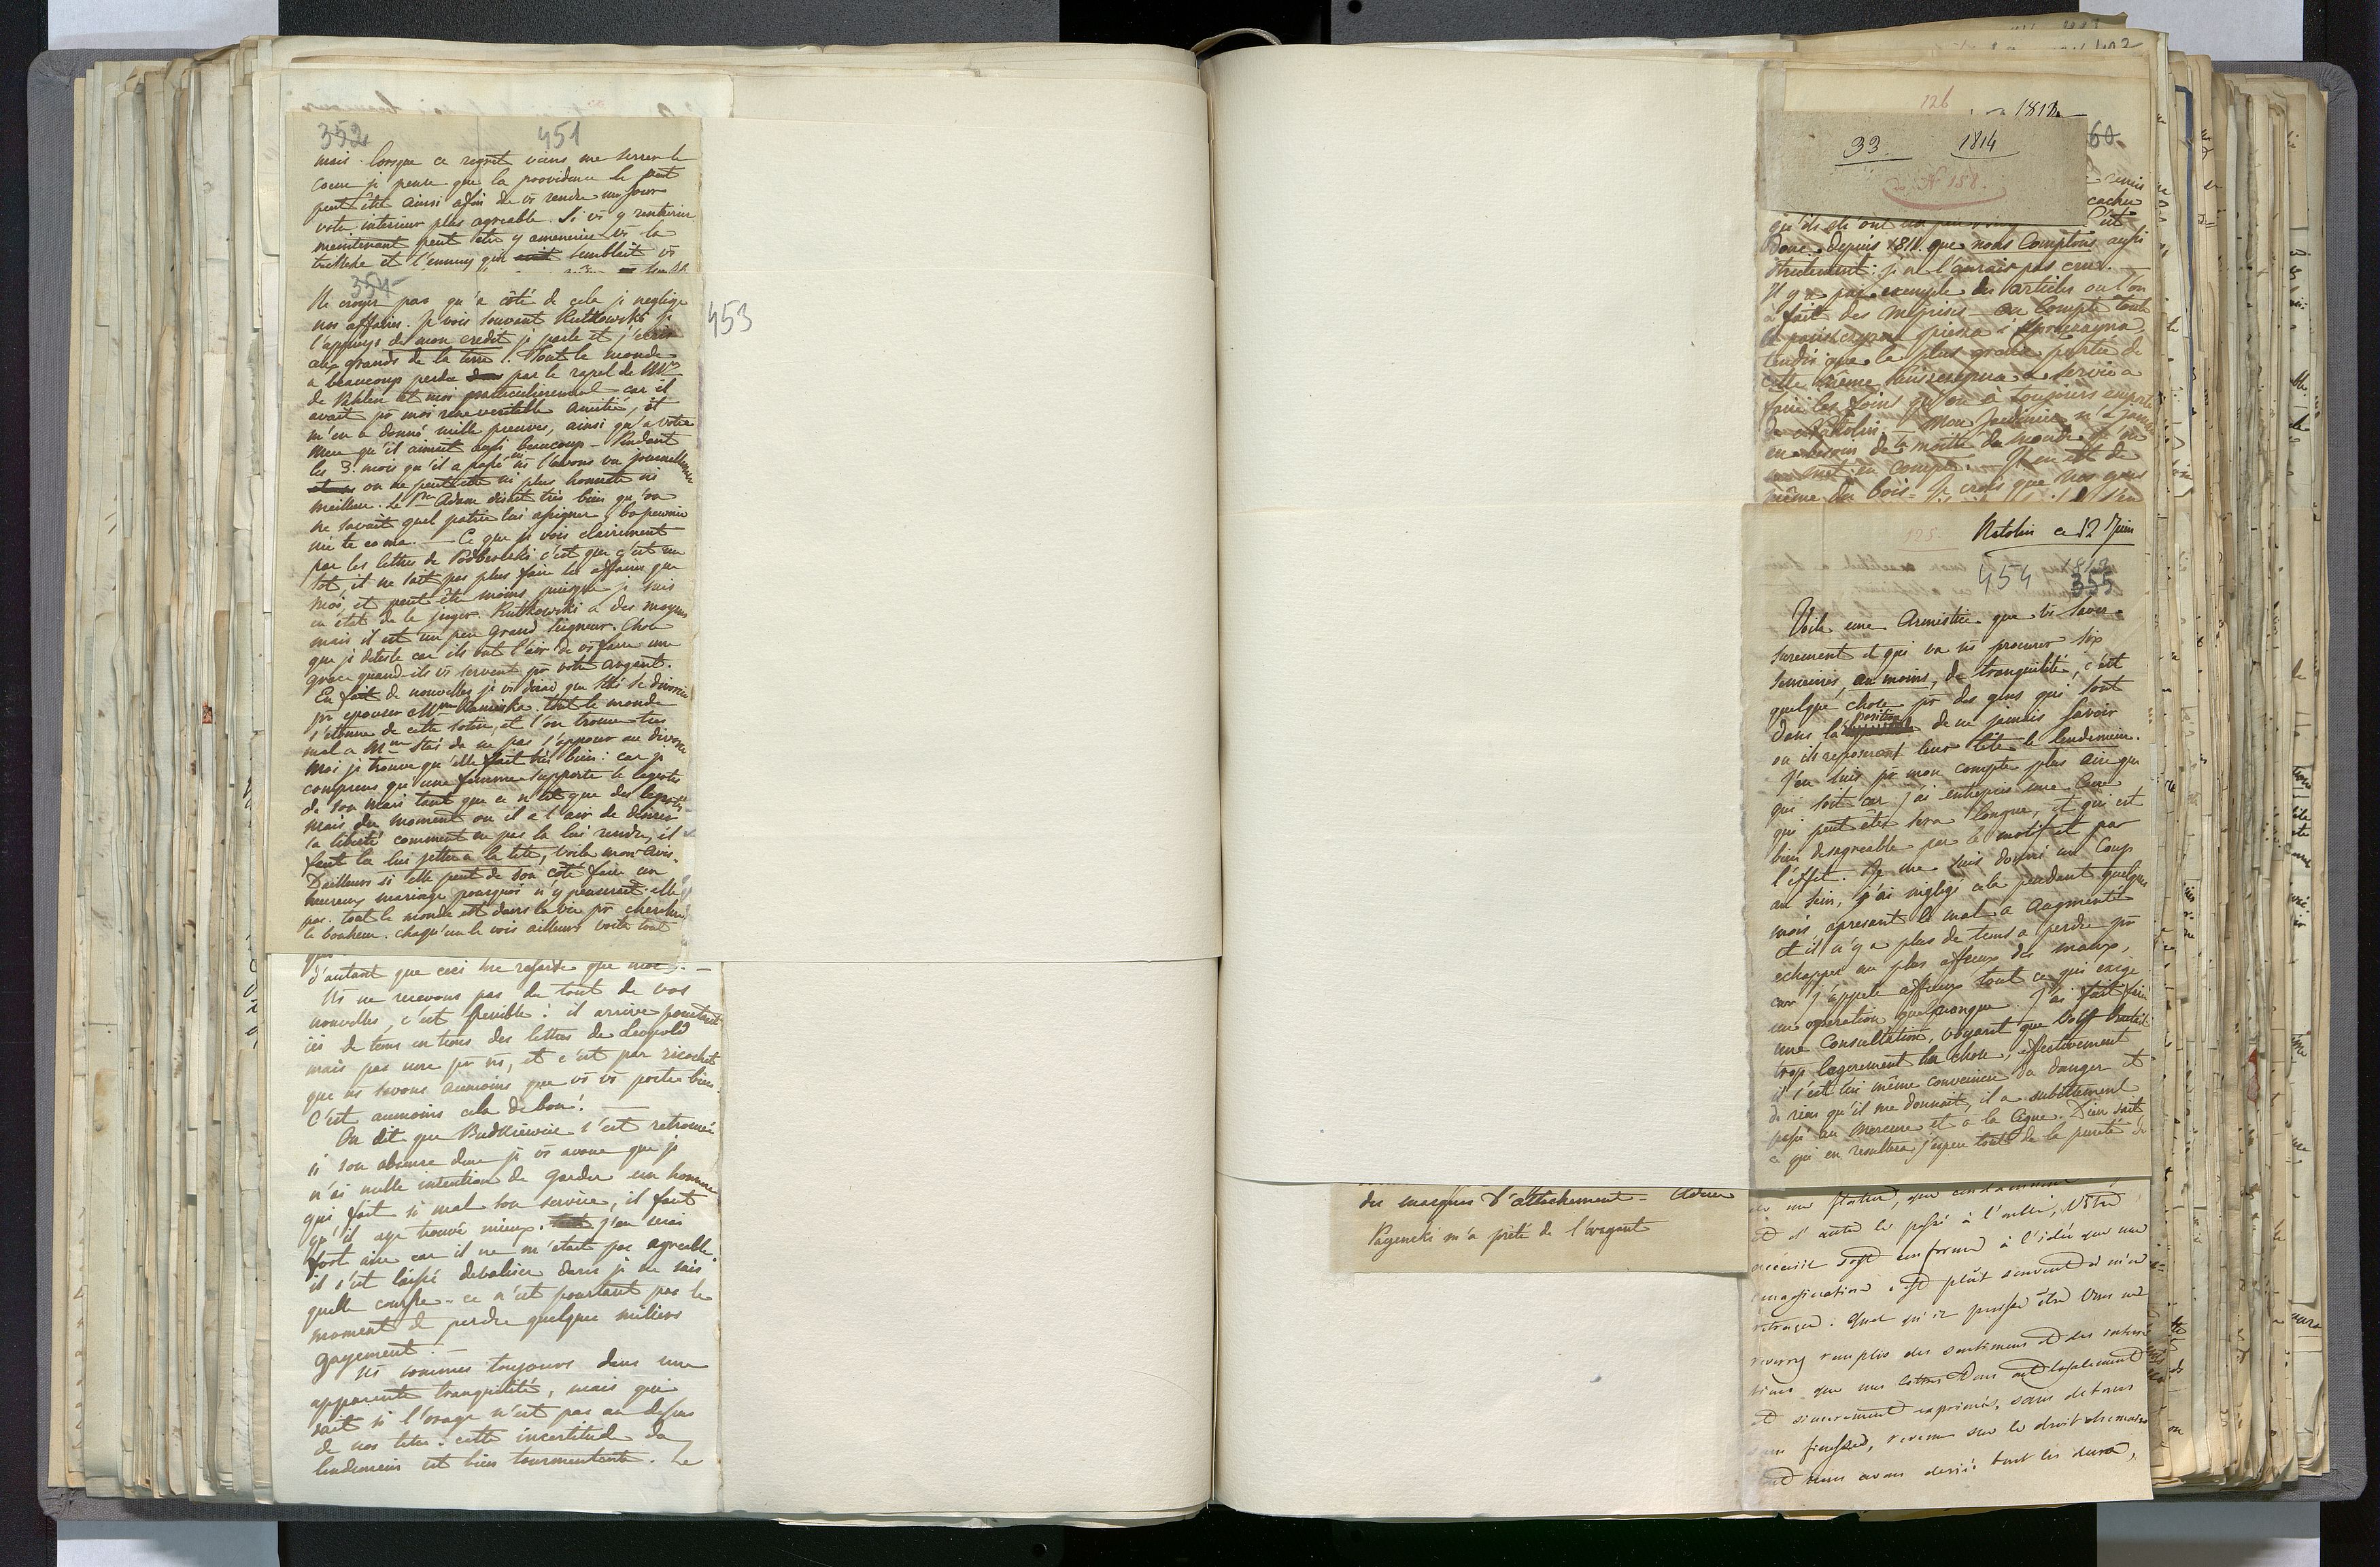 352 451
mais lorsque ce regret viens me serrer le
coeur je pense que la providence le veut
peut être ainsi afin de vs rendre un jour
votre interieur plus agreable. Si vs y rentriez
maintenant peut etre y ameneriez vs la
tristesse et l'ennuy qui semblait vs
354
Ne croyez pas qu'a côté de cela je neglige
nos affaires. Je vois souvent Rutkowski je
l'appuye de mon credit je parle et j'ecris
aux grands de la terre! Tout le monde
a beaucoup perdu par le rapel de Mr
de Pahlen et moi particulierement car il
avait pr moi une veritable amitié, et
m'en a donné mille preuves, ainsi qu'a votre
Mere qu'il aimait aussi beaucoup - Pendant
les 3. mois qu'il a passé ns l'avons vu journellement
on ne peut etre ni plus honnete ni
meilleur. Le Pce Adam disait très bien qu'on
ne savait quel patrie lui assigner, bo pewnie
nie te co ma. — Ce que je vois clairement
par les lettres de c'est que c'est un
sot, il ne sait pas plus faire les affaires que
moi, et peut être moins puisque je suis
en etat de le juger. Rutkowski a des moyens
mais il est un peu Grand Seigneur. Chose
que je deteste car ils ont l'air de vs faire une
grace quand ils vs servent pr votre argent.
En fait de nouvelles je vs dirai que se divorce
pr epouser Mme Kaminska. tout le monde
s'etonne de cette sotise, et l'on trouve tres
mal a Mme de ne pas s'opposer au divorce
Moi je trouve qu'elle fait très bien: car je
comprens qu'une femme supporte le
de son mari tant que ce n'est que des
mais du moment ou il a l'air de desirer
sa liberté comment ne pas la lui rendre, il
faut la lui jetter a la tete, voila mon avis.
Dailleurs si elle peut de son côté faire un
heureux mariage pourquoi n'y penserait elle
pas. tout le monde est dans la vie pr chercher
le bonheur. chaqu'un le vois ailleurs voila tout
453
d'autant que ceci ne regarde que moi. —
Ns ne recevons pas du tout de vos
nouvelles, c'est penible: il arrive pourtant
ici de tems en tems des lettres de Leopold
mais pas une pr ns, et c'est par ricochet
que ns savons aumoins que vs vs portez bien.
C'est aumoins cela de bon!
On dit que Budkiewicz s'est retrouvé
si son absence dure je vs avoue que je
n'ai nulle intention de garder un homme
qui fait si mal son service, il faut
qu'il aye trouvé mieux. j'en serai
fort aise car il ne m'etait pas agreable.
il s'est laissé devaliser dans je ne sais
quelle course - ce n'est pourtant pas le
moment de perdre quelque miliers
gayement. —
Ns sommes toujours dans une
apparente tranquilité, mais qui
sait si l'orage n'est pas au dessus
de nos tetes. cette incertitude du
lendemain est bien tourmentante. Le
126
1813
60
33. 1814
N 158.
cacher
C'est
Donc depuis 1811. que nous Comptons aussi
strictement: je ne l'aurais pas cru. —
Il y a par exemple des articles ou l'on
a fait des méprises - on Compte tout
tandis que la plus grande partie de
cette même a servie a
faire les foins qu'on a toujours emporté
de Natolin. — Mon Jardinier n'a jamais
eu besoin de la moitié du monde qu'on
met en compte. Il en est de
même du bois. Je crois que nos gens
125.
Natolin ce 12 Juin
1813
454 355
Voila une Armistice que vs savez
surement et qui va ns procurer six
semaines, au moins, de tranquilité, c'est
quelque chose pr des gens qui sont
dans la position de ne jamais savoir
ou ils reposeront leur tête le lendemain.
J'en suis pr mon compte plus aise que
qui soit car j'ai entrepris une Cure
qui peut etre sera longue, et qui est
bien desagreable par le motif et par
l'effet. Je me suis donné un Coup
au sein, j'ai negligé cela pendant quelques
mois, apresent le mal a augmenté
et il n'y a plus de tems a perdre pr
echapper au plus affreux des maux,
car j'appele affreux tout ce qui exige
une operation quelquonque. J'ai fait faire
une Consultation, voyant que Wolf traitait
trop legerement la chose; effectivement
il s'est lui même convaincu du danger et
de rien qu'il me donnait, il a subitement
passé au Mercure et a la Cigue. Dieu sait
ce qui en resultera, j'espere tout de la pureté de
des marques d'attachement - Adam
m'a prêté de l'argent
imagination s'est plût souvent a m'en
retracer. Quel qu'il puisse être Vous me
reverrez remplis des sentimens et des
que mes lettres Vous ont loyalement
et sincerement exprimés, sans detours
sans finesses, revenu sur le droit chemin